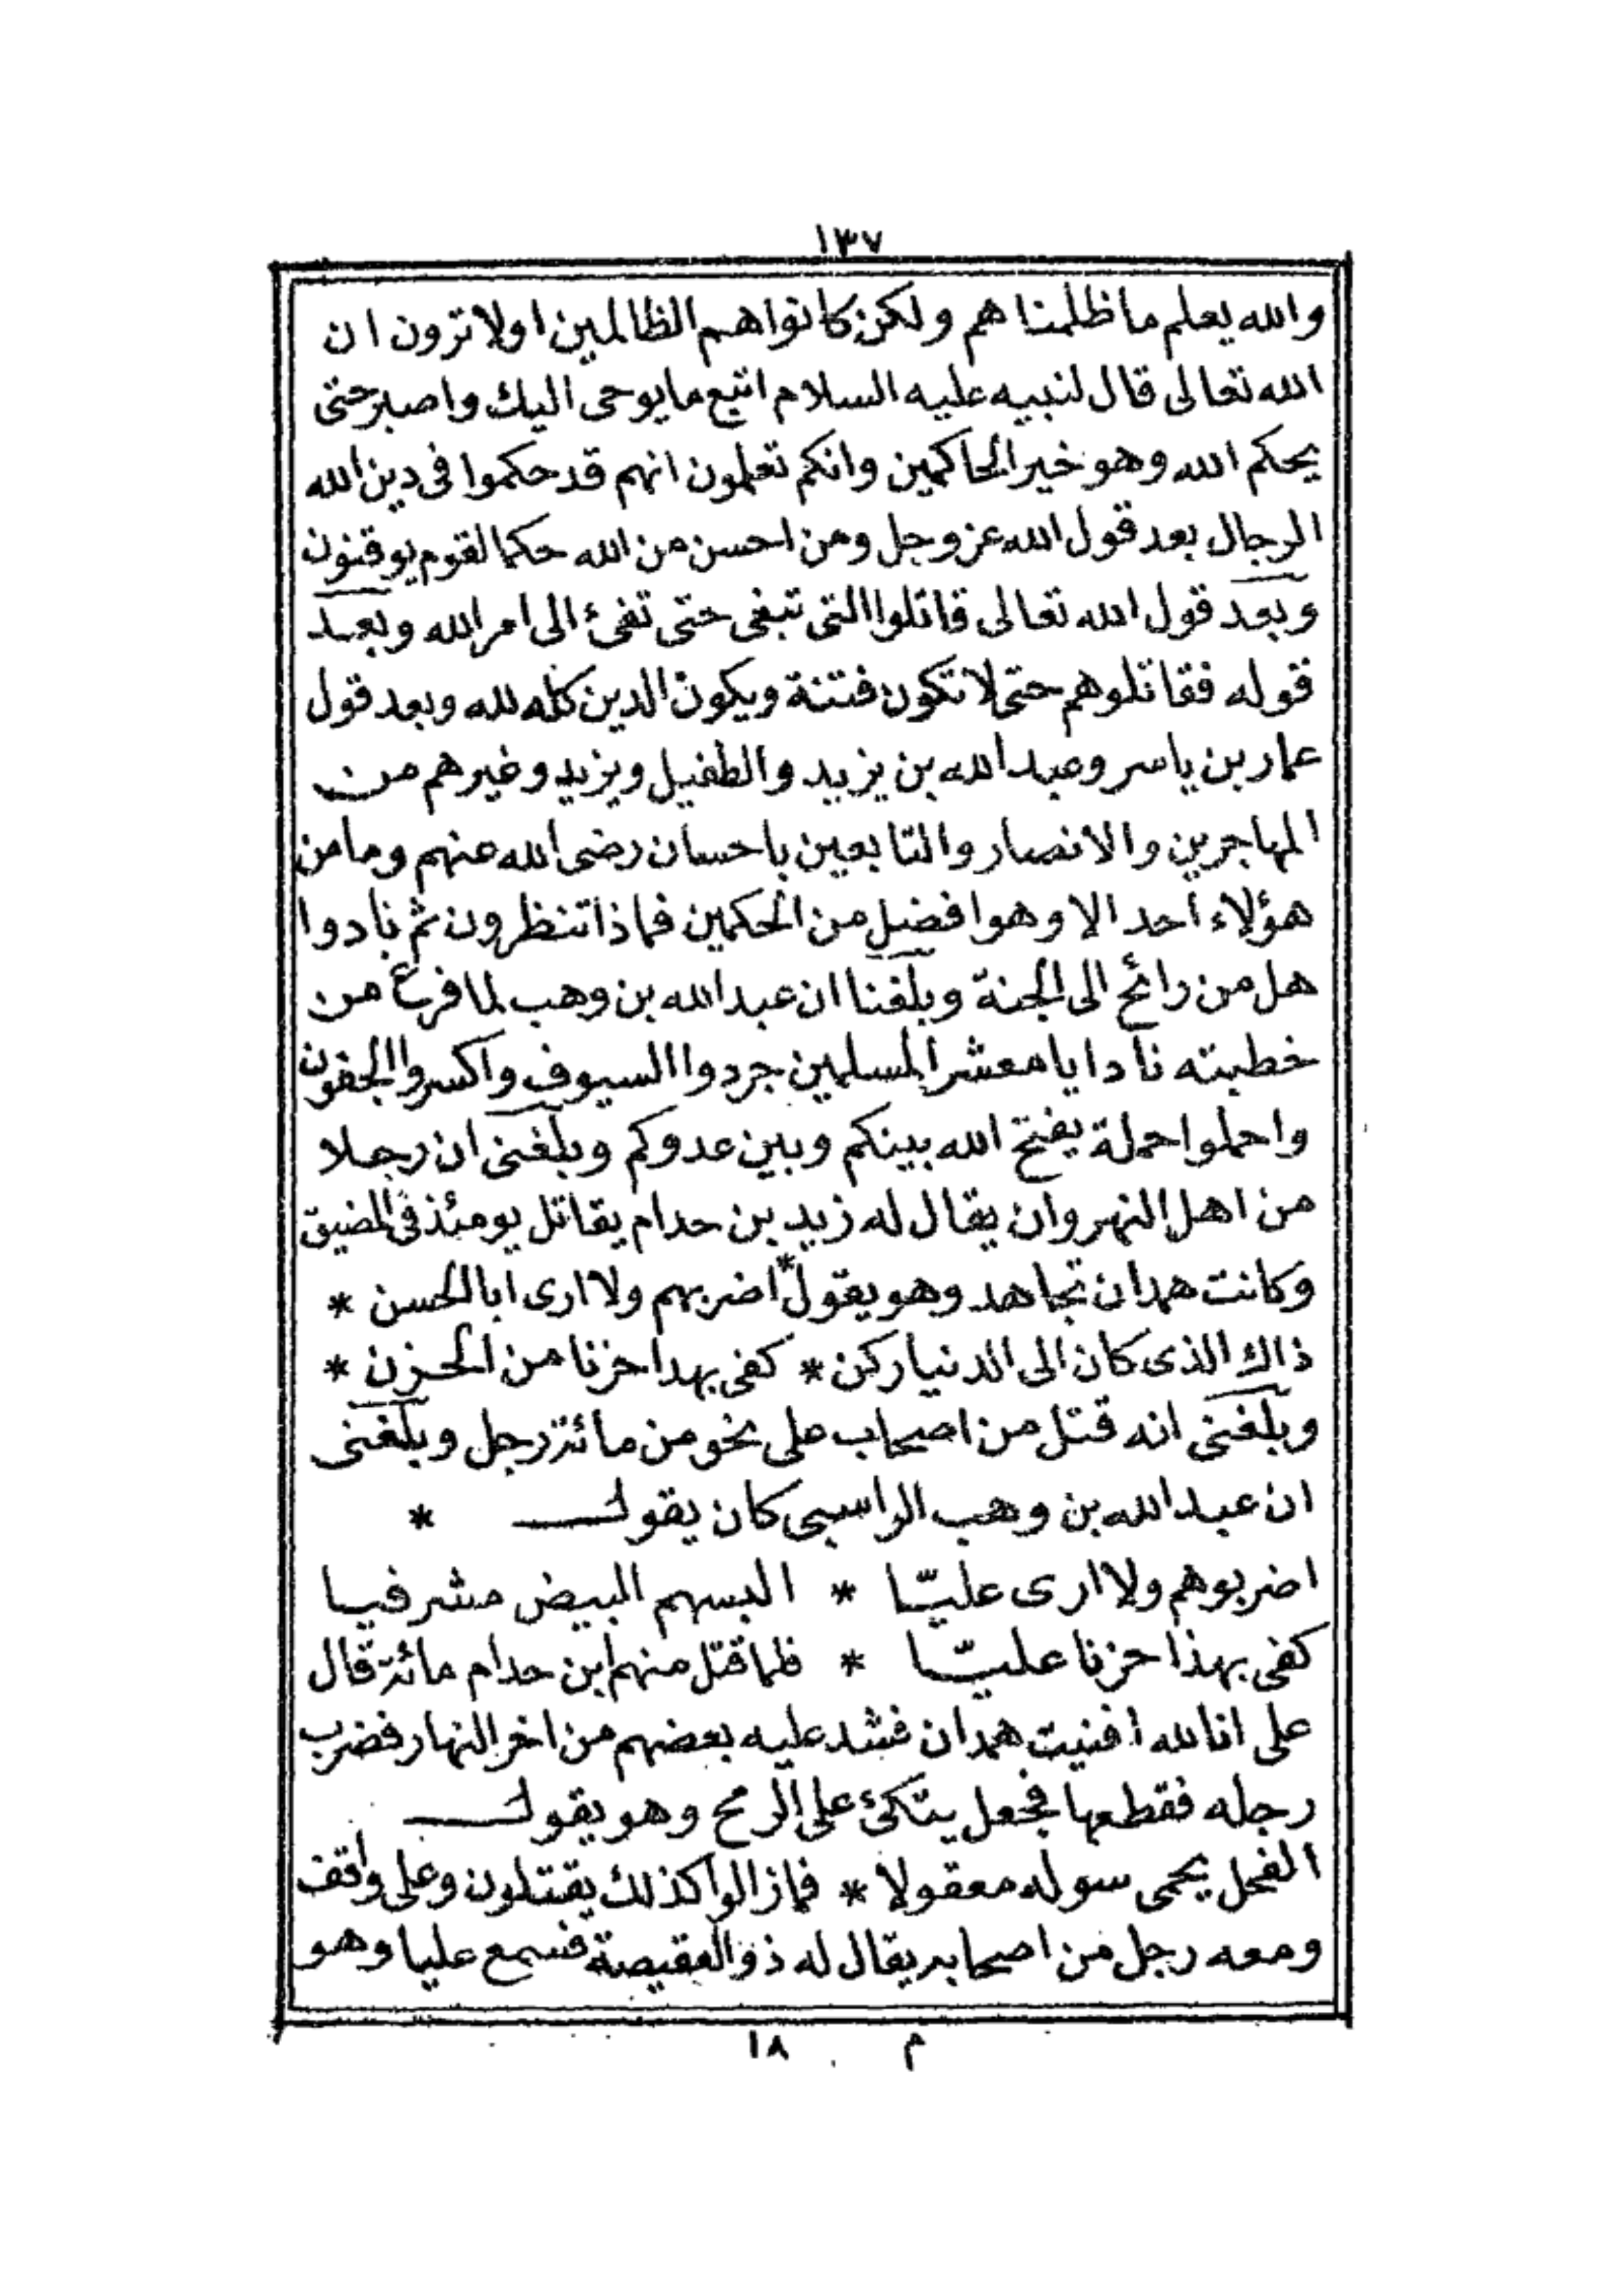 ١٣٧
والله يعلم ما ظلمناهم ولكن كانوا هم الظالمين اولا ترون ان
الله تعالى قال لنبيه عليه السلام اتبع ما يوحى اليك واصبر حتى
يحكم الله وهو خير الحاكمين وانكم تعلمون انهم قد حكموا فى دين الله
الرجال بعد قول الله عز وجل ومن احسن من الله حكما لقوم يوقنون
وبعد قول الله تعالى قاتلوا التى تبغى حتى تفئ الى امر الله وبعد
قوله فقاتلوهم حتى لا تكون فتنة ويكون الدين كله لله وبعد قول
عمار بن ياسر وعبد الله بن يزيد والطفيل ويزيد وغيرهم من
المهاجرين والانصار والتابعين باحسان رضى الله عنهم وما من
هؤلاء احد الا وهو افضل من الحكمين فماذا تنظرون ثم نادوا
هل من رائح الى الجنة وبلغنا ان عبد الله بن وهب لما فرغ من
خطبته نادا يا معشر المسلمين جردوا السيوف واكسروا الجفون
واحملوا حملة يفتح الله بينكم وبين عدوكم وبلغنى ان رجلا
من اهل النهروان يقال له زيد بن حدام يقاتل يومئذ فى المضيق
وكانت همدان تجاهد وهو يقول * اضربهم ولا ارى ابا الحسن *
ذاك الذى كان الى الدنيا ركن * كفى بهدا حزنا من الحزن *
وبلغنى انه قتل من اصحاب على نحو من مائة رجل وبلغنى
ان عبد الله بن وهب الراسبى كان يقول *
اضربوهم ولا ارى عليّا * البسهم البيض مشرفيا
كفى بهذا حزنا عليّا * فلما قتل منهم ابن حدام مائة قال
على انا لله افنيت همدان فشد عليه بعضهم من اخر النهار فضرب
رجله فقطعها فجعل يتكئ على الرمح وهو يقول
الفحل يحمى سوله معقولا * فما زالوا كذلك يقتتلون وعلى واقف
ومعه رجل من اصحابه يقال له ذو العقيصة فسمع عليا وهو
م ١٨